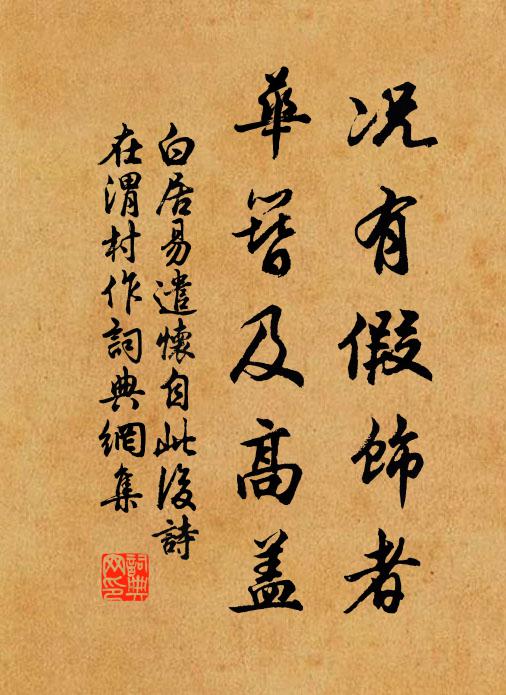 况有假飾者
華簪及高蓋
白居易遣懷自此後詩
在渭村作詞典網集
詞典網印